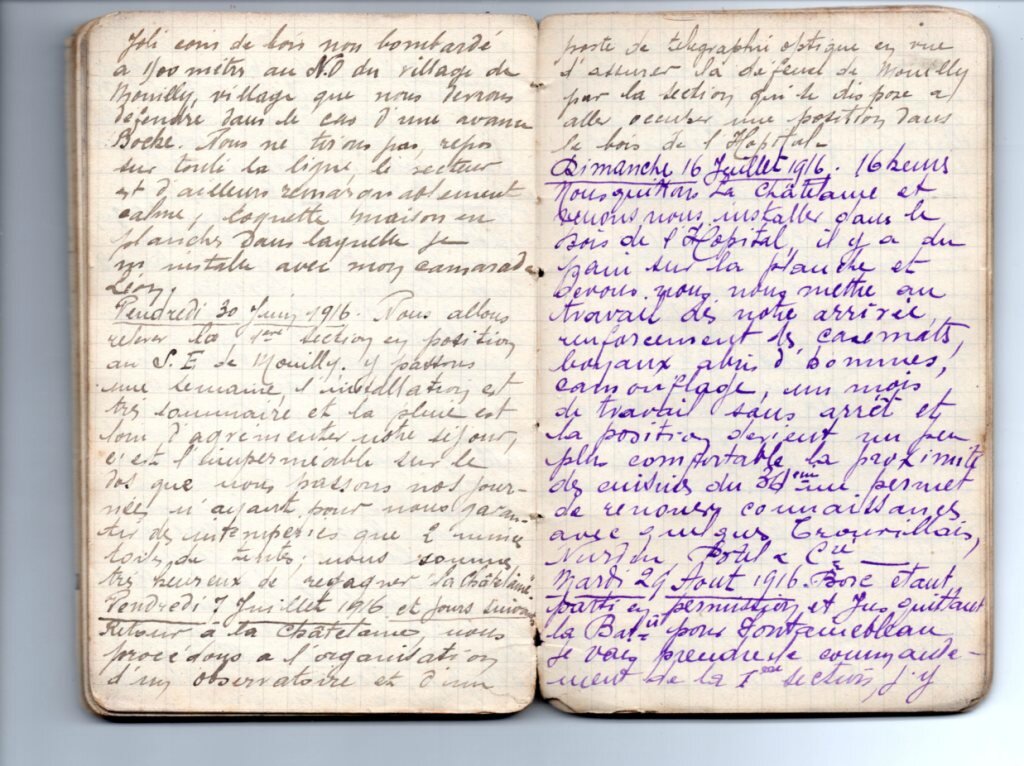 Joli coin de bois non bombardé
a 1500 mètres au N.O du village de
Mouilly, village que nous devons
défendre dans le cas d'une avance
Boche. Nous ne tirons pas, repos
sur toute la ligne, le secteur
est d'ailleurs remarquablement
calme, coquette maison en
planches dans laquelle je
m'installe avec mon camarade
Léon.
Vendredi 30 Juin 1916. Nous allons
relever la 1ere section en position
au S.E de Mouilly. y passons
une semaine, l'installation est
très sommaire et la pluie est
loin d'agrémenter notre séjour,
c'est l'imperméable sur le
dos que nous passons nos jour-
nées n'ayant pour nous garan-
tir des intempéries que 2 minces
toiles de tentes; nous sommes
très heureux de regagner la Châtelaine
Vendredi 7 Juillet 1916 et jours suivants
Retour à la Châtelaine, nous
procédons a l'organisation
d'un observatoire et d'un
poste de télégraphie optique en vue
d'assurer la défense de Mouilly
par la section qui se dispose a
aller occuper une position dans
le bois de l'Hopital.
Dimanche 16 Juillet 1916. 16 heures
Nous quittons La Châtelaine et
venons nous installer dans le
Bois de l'Hopital, il y a du
pain sur la planche et
devons nous mettre au
travail dès notre arrivée,
renforcement des casemates,
boyaux abris d'hommes,
camouflage, un mois
de travail sans arrêt et
la position devient un peu
plus comfortable la proximité
des cuisines du permet
de renouer connaissances
avec quelques Trouvillais,
Cie
Mardi 29 Aout 1916. étant
parti en permission et quittant
la Batie pour Fontainebleau
je vais prendre le commande-
ment de la 1ere section j'y